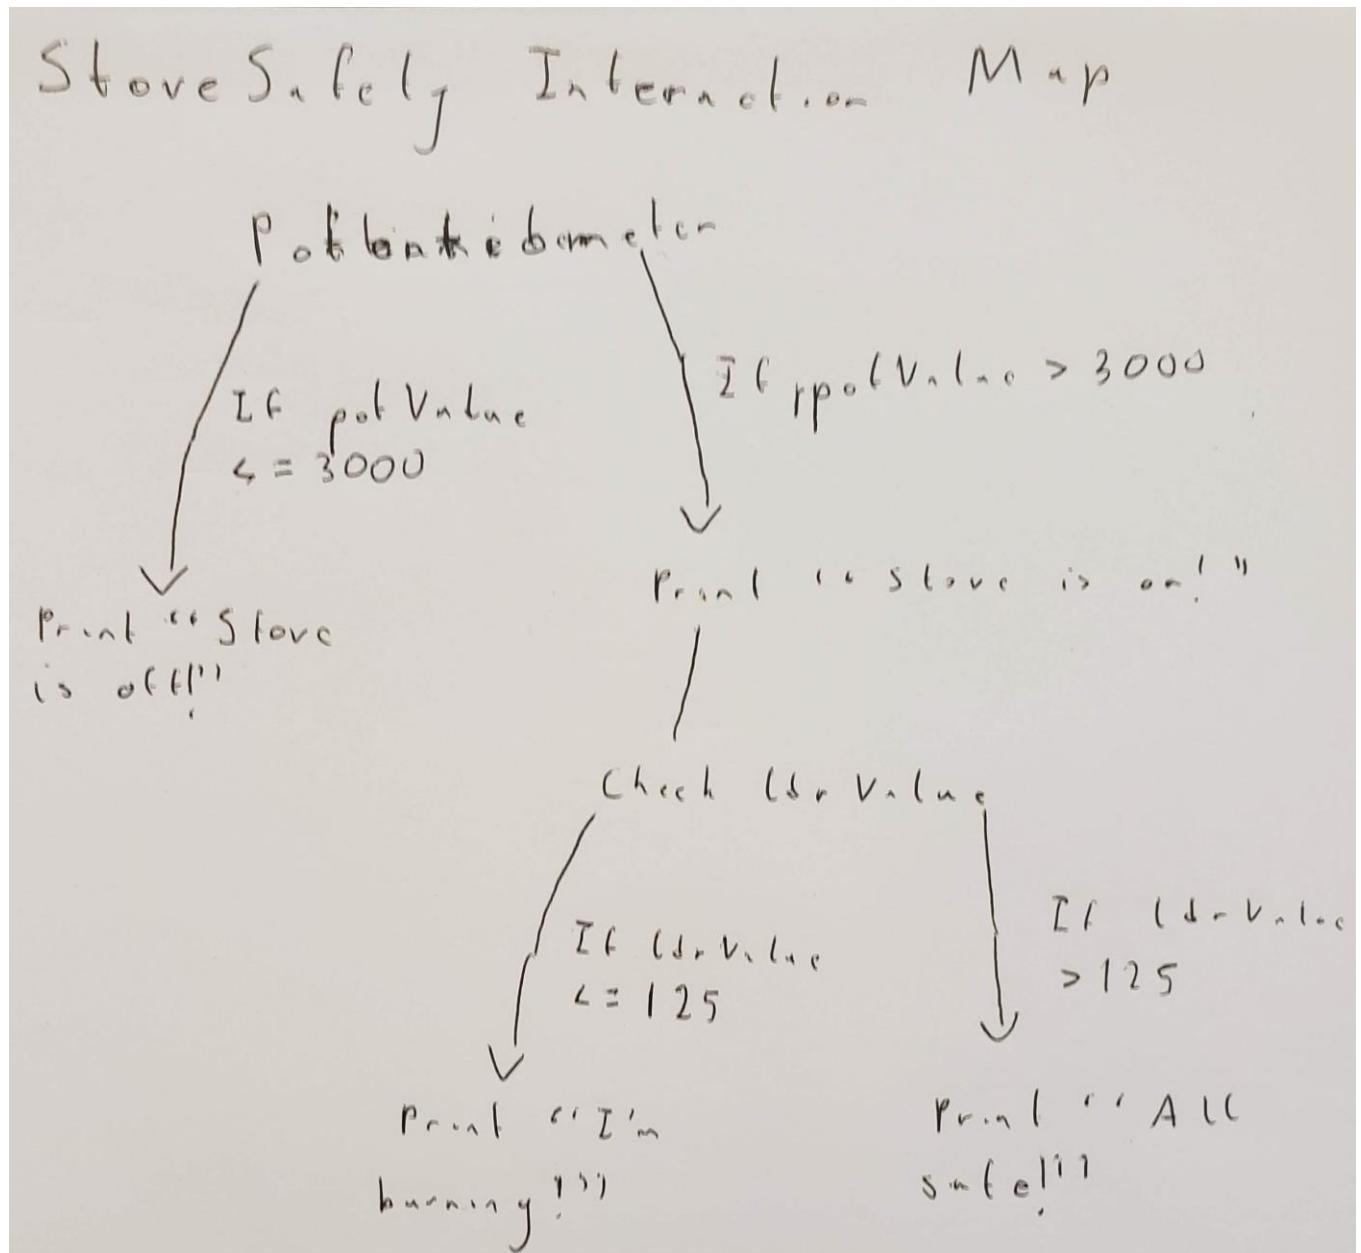 Stove Safety Interaction Map
Potentiometer
If potValue > 3000
If potValue
<= 3000
Print "Stove is on!"
Print "Stove
is off!"
Check ldrValue
If ldrValue
> 125
If ldrValue
<= 125
Print "I'm
burning!"
Print "All
safe!"